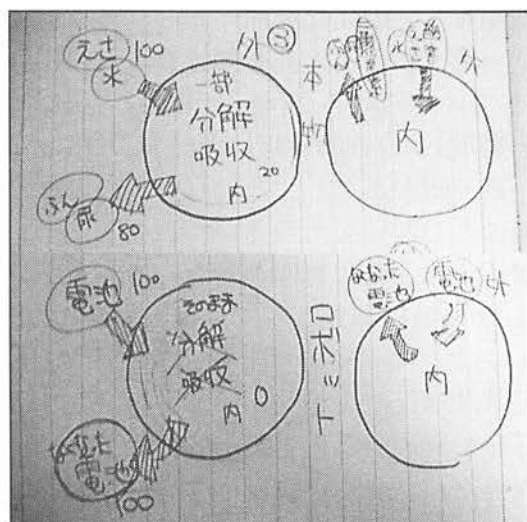 えさ 100
水
外
③
一部
分解
吸収
20
内
ふん
尿
80
本
物
水
外
内
電池 100
そのまま
分解
吸収
内 0
なくなった
電池
100
ロボット
なくなった
電池
電池
外
内